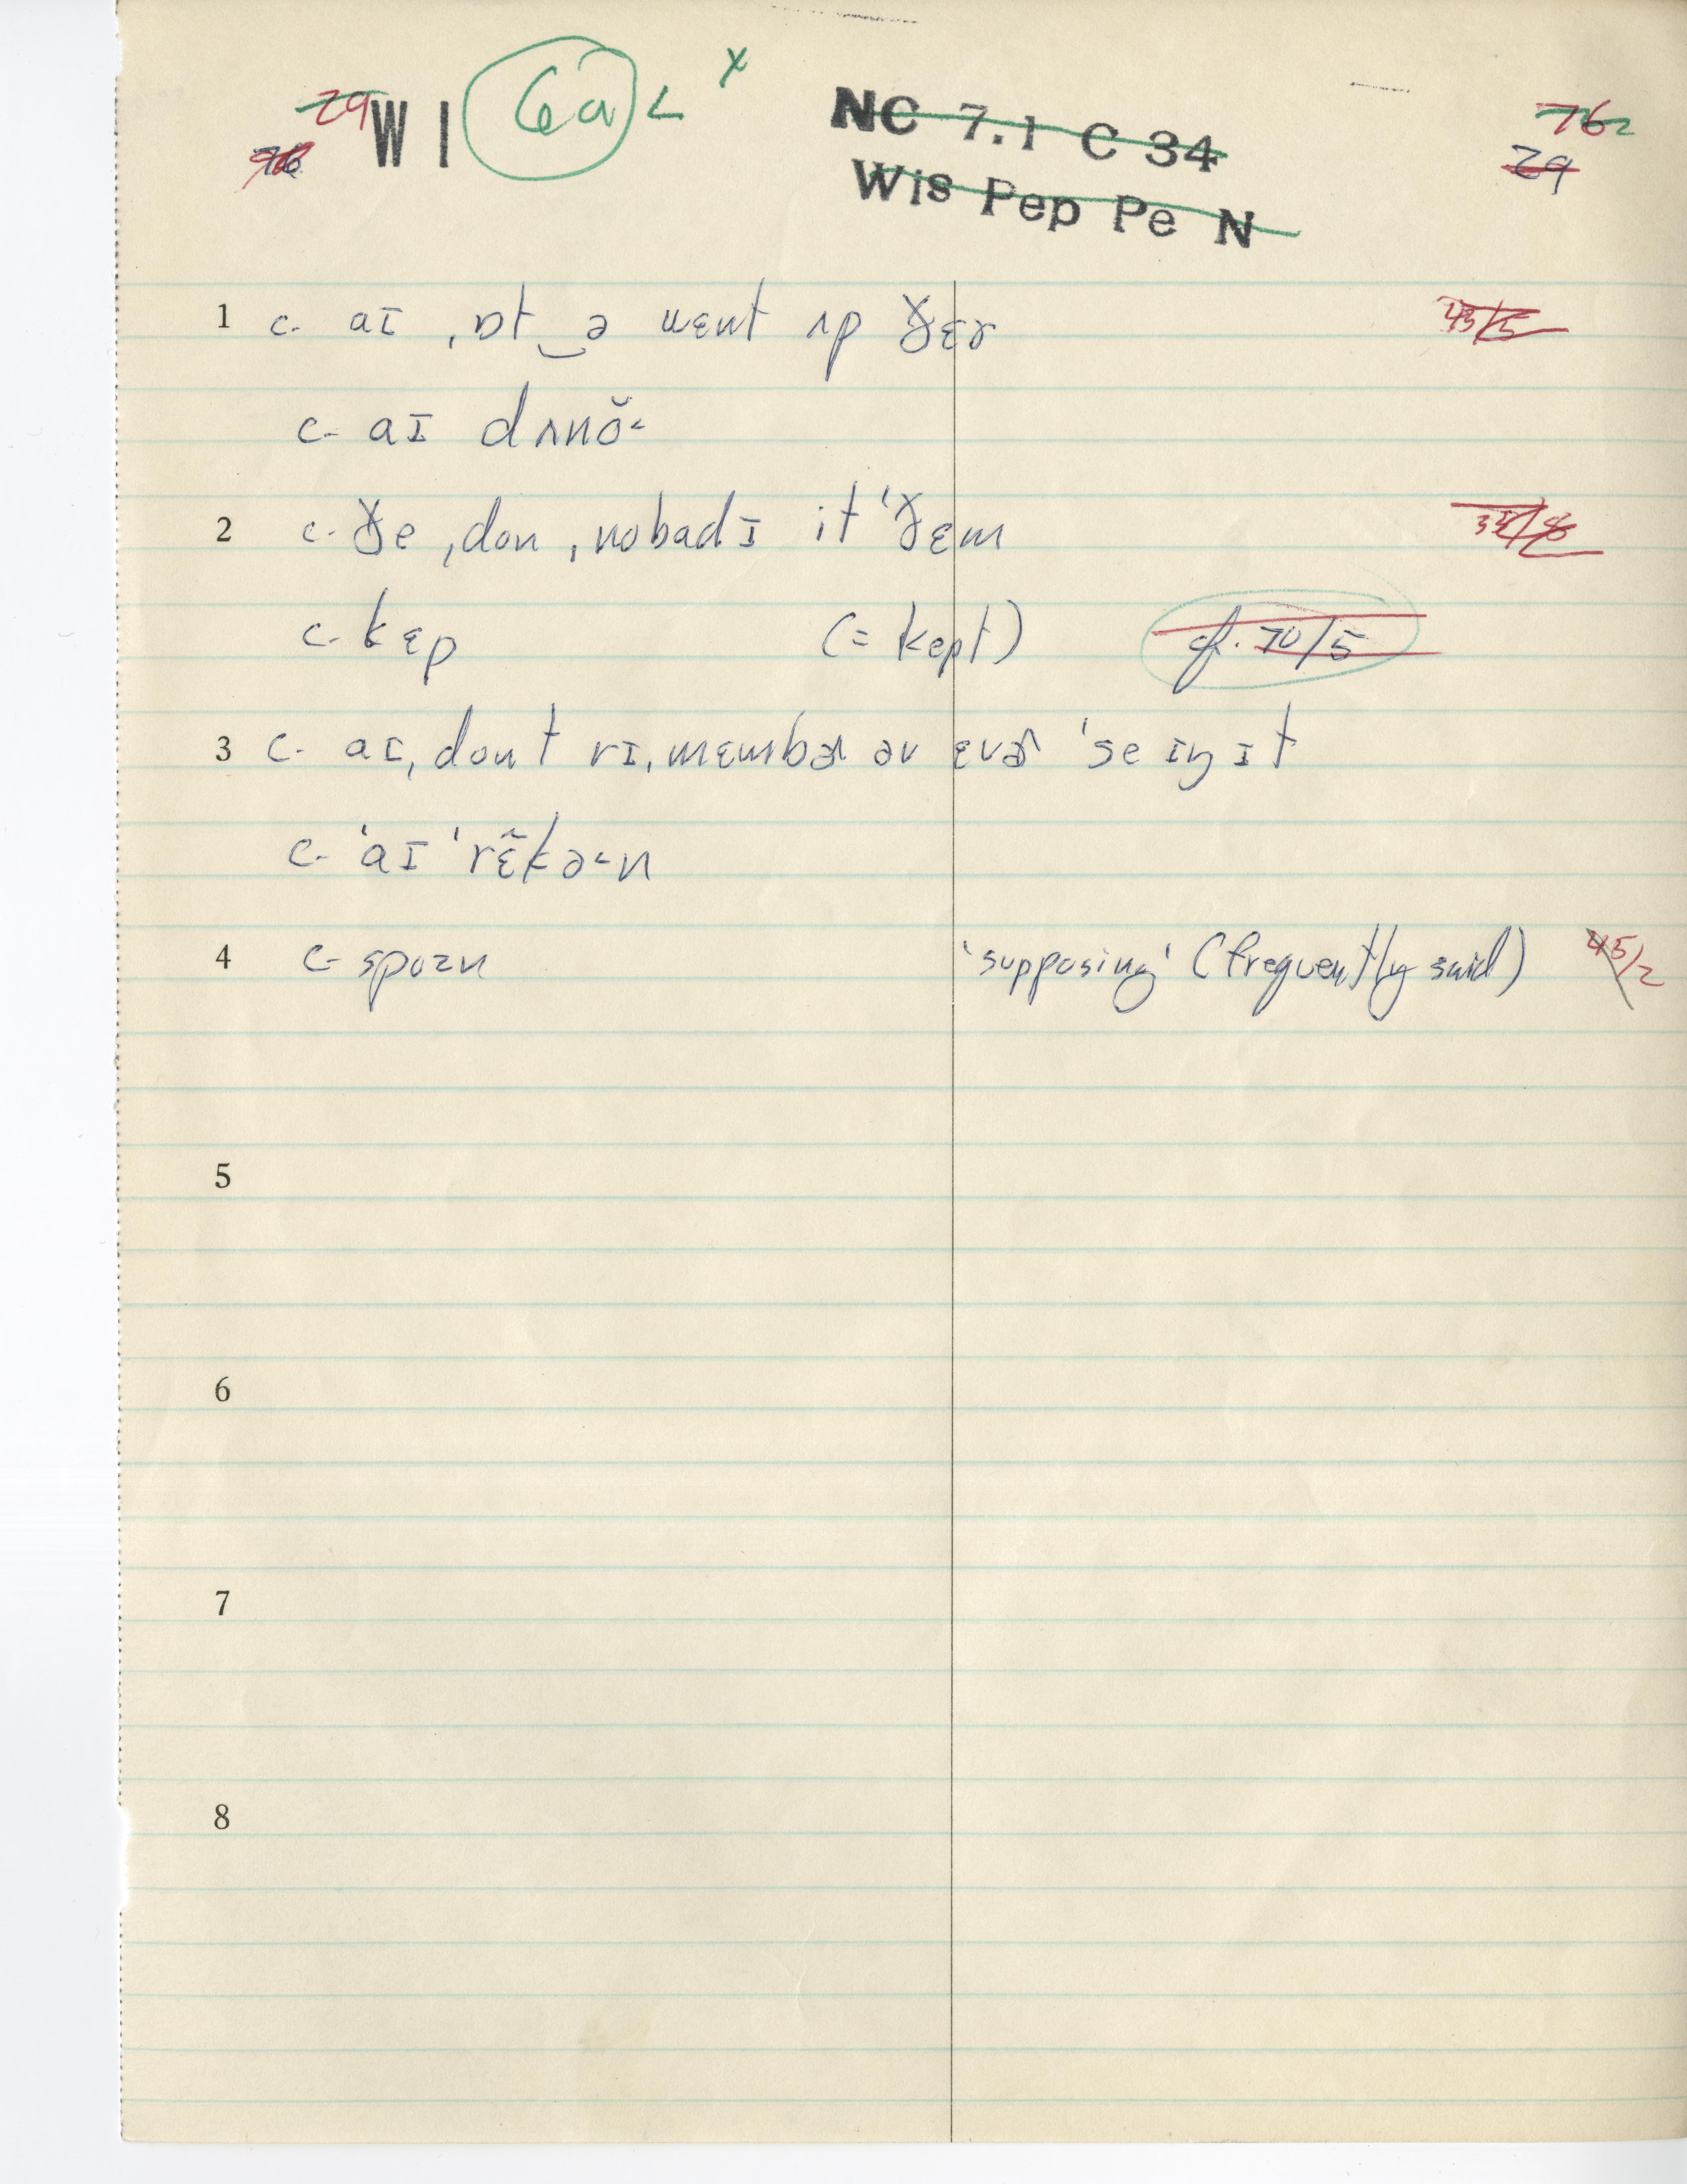 29 W I 6a < x NC 7.1 C 34 76
29
Wis Pep Pe N
1 c. aɪ ˌɒt‿ə wɛnt ʌp ðɛɚ
c- aɪ dʌnŏ˂
2 c- ðe ˌdon ˌnobadɪ it ˈðɛm
c- kɛp (= kept) cf. 70/5
3 c- aɪ ˌdont rɪˌmɛmbɚ əv ɛvɚ ˈseɪŋ ɪt
c- ˈaɪ ˈrɛ̃kə˂n
4 c- spozn 'supposing' (frequently said) 45/2
5
6
7
8